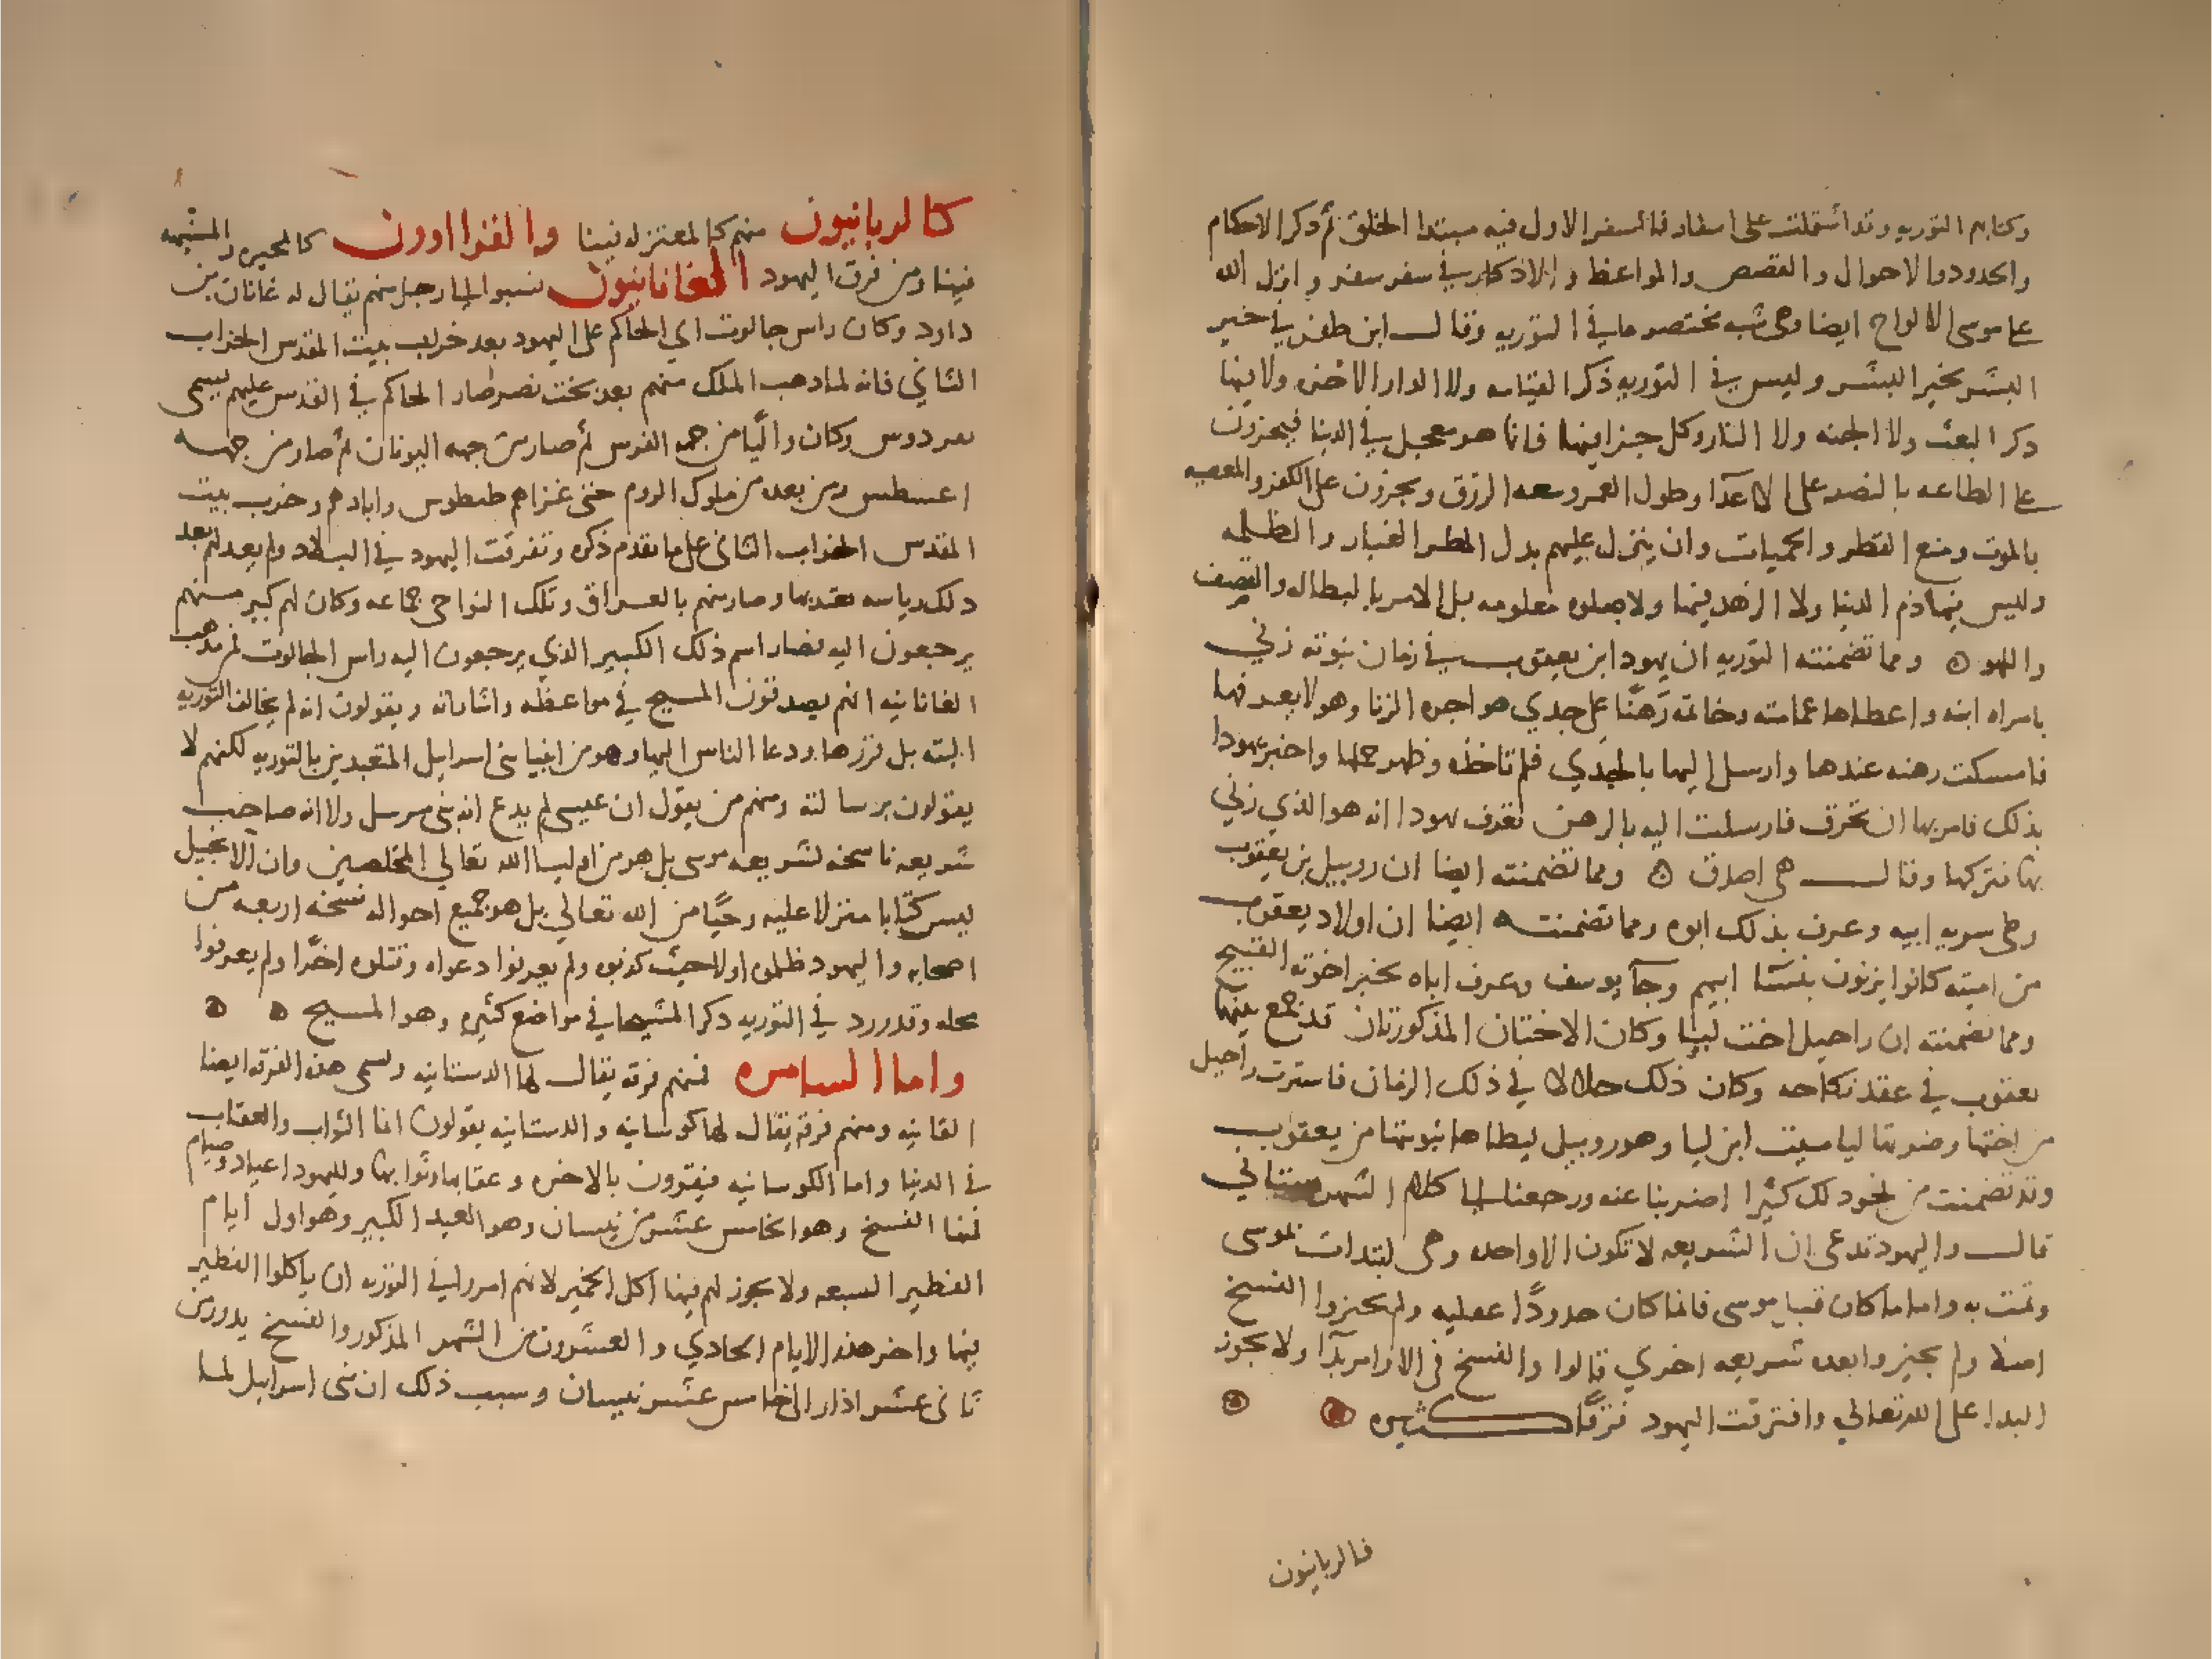 وكتابهم التوريه وقد اشتملت على اسفار فالسفر الاول فيه مبتدا الخلق ثم ذكر الاحكام
والحدود والاحوال والقصص والمواعظ والاذكار في سفر سفر وانزل الله
على موسى الالواح ايضا وهي شبه مختصر ما في التوريه وقال ابن ظفر في خير
البشر بخير البشر وليس في التوريه ذكر القيامه ولا الدار الاخره ولا فيها
ذكر البعث ولا الجنه ولا النار وكل جزا فيها فانما هو معجل في الدنيا فيجزون
على الطاعه بالنصر على الاعدآ وطول العمر وسعه الرزق ويجزون على الكفر والمعصيه
بالموت ومنع القطر والحميات وان ينزل عليهم بدل المطر الغبار والظلمه
وليس فيها ذم الدنيا ولا الزهد فيها ولا صلوه معلومه بل الامر بالبطاله والقصف
واللهو ۞ ومما تضمنته التوريه ان يهودا بن يعقوب في زمان نبوته زني
بامراه ابنه واعطاها عمامته وخاتمه رهنًا على جدي هو اجره الزنا وهو لا يعرفها
فامسكت رهنه عندها وارسل اليها بالجدي فلم تاخذه وظهر حملها واخبر يهودا
بذلك فامر بها ان تحرق فارسلت اليه بالرهن فعرف يهودا انه هو الذي زني
بها فتركها وقال هي اصدق ۞ ومما تضمنته ايضا ان روبيل بن يعقوب
وطي سريه ابيه وعرف بذلك ابوه ومما تضمنته ايضا ان اولاد يعقوب
من امتيه كانوا يزنون بنسآ ابيهم وجآ يوسف وعرف اباه بخبر اخوته القبيح
ومما تضمنته ان راحيل اخت ليا وكان الاختان المذكورتان قد جمع بينهما
يعقوب في عقد نكاحه وكان ذلك حلالا في ذلك الزمان فاشترت راحيل
من اختها وضرتها ليا مبيت ابن ليا وهو روبيل ليطاها بنوبتها من يعقوب
وقد تضمنت من نحو ذلك كثيرا اضربنا عنه ورجعنا الى كلام الشهرستاني
قال واليهود تدعي ان الشريعه لا تكون الا واحده وهي ابتدات بموسى
وتمت به واما ما كان قبل موسى فانما كان حدودًا عقليه ولم يجيزوا النسخ
اصلا ولم يجيزوا بعده شريعه اخري قالوا والنسخ في الاوامر بدآ ولا يجوز
البدا على الله تعالي وافترقت اليهود فرقًا كثيره ۞ ۞
فالربانيون
كالربانيون منهم كالمعتزله فينا والقراوون كالمجبره والمشبهه
فينا ومن فرق اليهود العانانيون نسبوا الى رجل منهم يقال له عانان بن
داود وكان راس جالوت اي الحاكم على اليهود بعد خراب بيت المقدس الخراب
الثاني فانه لما ذهب الملك منهم بعد بخت نصر صار الحاكم في القدس عليهم يسمى
هردوس وكان واليًا من جهه الفرس ثم صار من جهه اليونان ثم صار من جهه
اغسطس ومن بعده من ملوك الروم حتى غزاهم طيطوس وابادهم وخرب بيت
المقدس الخراب الثاني على ما تقدم ذكره وتفرقت اليهود في البلاد ولم يعد لهم بعد
ذلك رياسه يعتد بها وصار منهم بالعراق وتلك النواحي جماعه وكان لهم كبير منهم
يرجعون اليه فصار اسم ذلك الكبير الذي يرجعون اليه راس الجالوت فمن مذهب
العانانيه انهم يصدقون المسيح في مواعظه واشاراته ويقولون انه لم يخالف التوريه
البته بل قررها ودعا الناس اليها وهو من انبيا بني اسرايل المتعبدين بالتوريه لكنهم لا
يقولون برسالته ومنهم من يقول ان عيسى لم يدع انه نبي مرسل ولا انه صاحب
شريعه ناسخه لشريعه موسى بل هو من اوليا الله تعالي المخلصين وان الانجيل
ليس كتابا منزلا عليه وحيًا من الله تعالي بل هو جميع احواله نسخه اربعه من
اصحابه واليهود ظلموه اولا حيث كذبوه ولم يعرفوا دعواه وقتلوه اخرًا ولم يعرفوا
محله وقد ورد في التوريه ذكر المشيحا في مواضع كثيره وهو المسيح ۞ ۞
واما السامره فمنهم فرقه يقال لها الدستانيه وتسمى هذه الفرقه ايضا
الفانيه ومنهم فرقه يقال لها كوسانيه والدستانيه يقولون انما الثواب والعقاب
في الدنيا واما الكوسانيه فيقرون بالاخره وعقابها وثوابها ولليهود اعياد وصيام
فمنها الفسح وهو الخامس عشر من نيسان وهو العيد الكبير وهو اول ايام
الفطير السبعه ولا يجوز لهم فيها اكل الخمير لانهم امروا في التوريه ان ياكلوا الفطير
فيها واخر هذه الايام الحادي والعشرون من الشهر المذكور والفسح يدور من
ثاني عشر اذار الى خامس عشر نيسان وسبب ذلك ان بني اسرايل لما